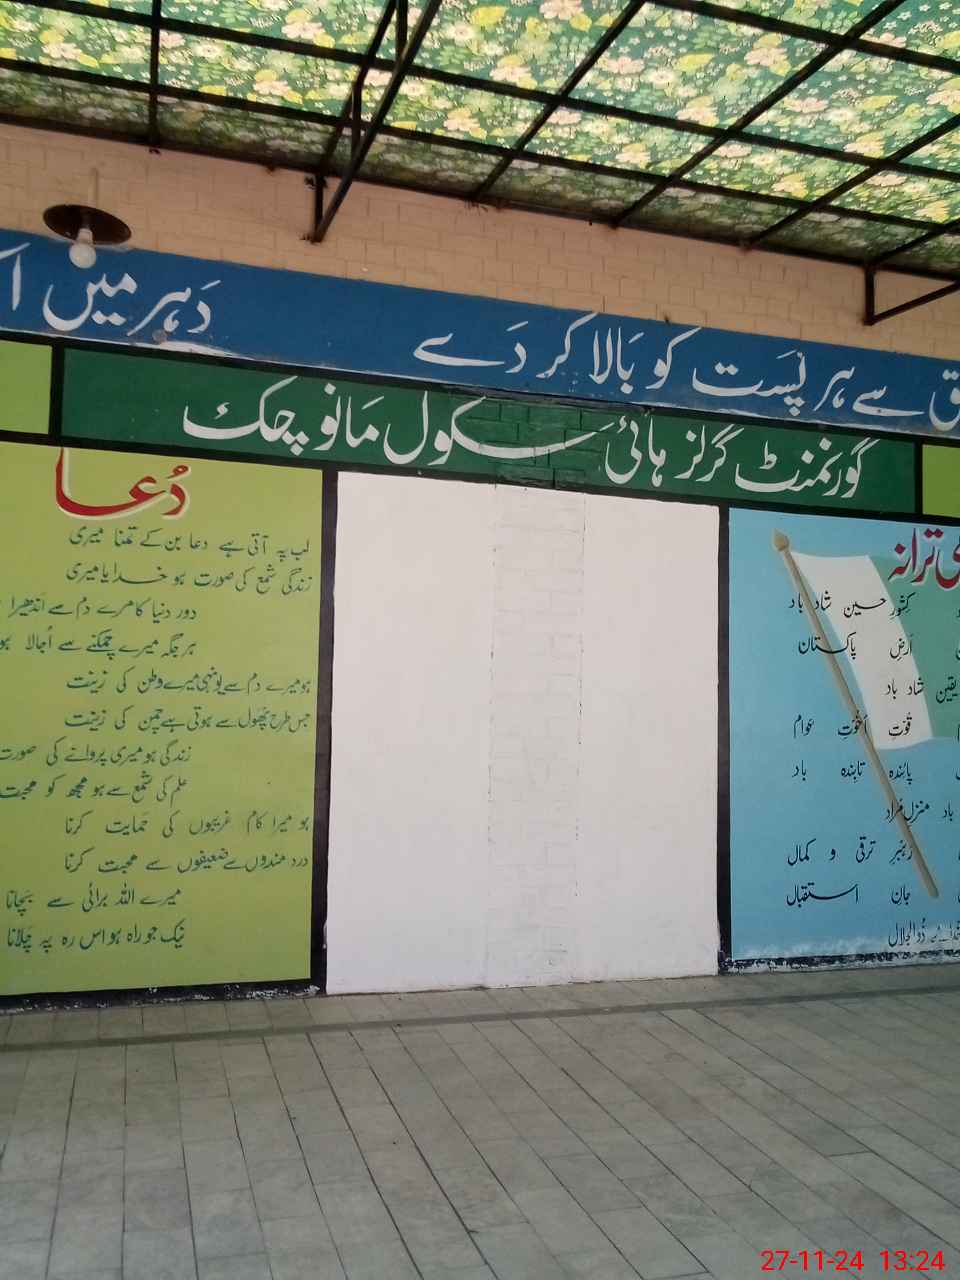 سے ہر پست کو بالا کر دے
دہر میں
گورنمنٹ گرلز ہائی سکول مانو چک
دُعا
لب پہ آتی ہے دعا بن کے تمنا میری
زندگی شمع کی صورت ہو خدایا میری
دور دنیا کا مرے دم سے اندھیرا
ہر جگہ میرے چمکنے سے اُجالا ہو
ہو میرے دم سے یونہی میرے وطن کی زینت
جس طرح پھول سے ہوتی ہے چمن کی زینت
زندگی ہو میری پروانے کی صورت
علم کی شمع سے ہو مجھ کو محبت
ہو میرا کام غریبوں کی حمایت کرنا
درد مندوں سے ضعیفوں سے محبت کرنا
میرے اللہ برائی سے بچانا
نیک جو راہ ہو اس رہ پہ چلانا
ترانہ
کشورِ حسین شاد باد
ارضِ پاکستان
یقین شاد باد
قوّتِ اخوّتِ عوام
پائندہ تابندہ باد
باد منزلِ مراد
رہبرِ ترقی و کمال
جانِ استقبال
ذوالجلال
27-11-24 13:24